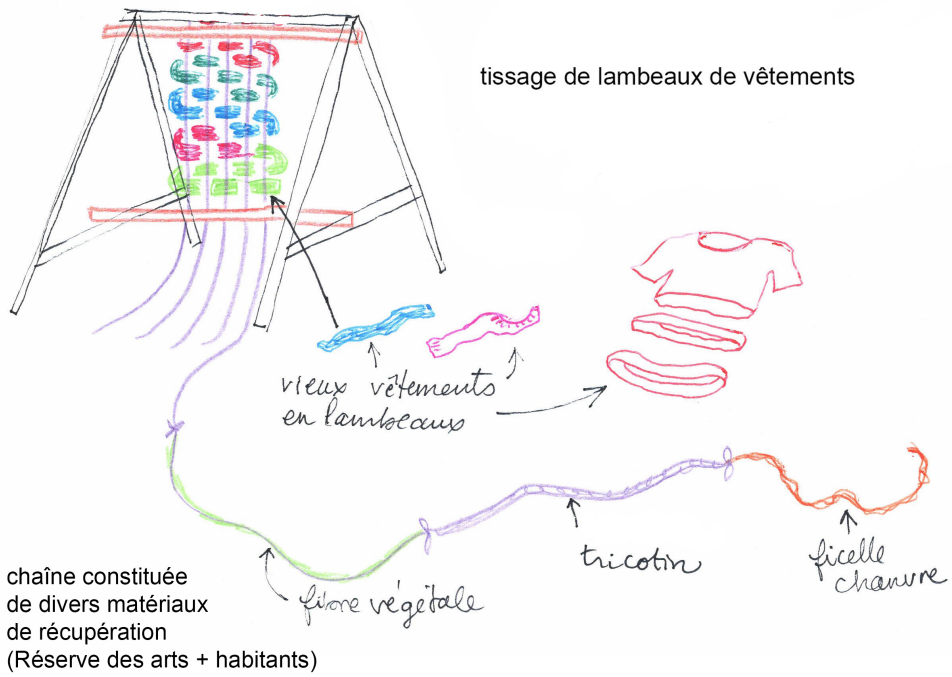 tissage de lambeaux de vêtements
vieux vêtements
en lambeaux
tricotin
ficelle
chanvre
fibre végétale
chaîne constituée
de divers matériaux
de récupération
(Réserve des arts + habitants)